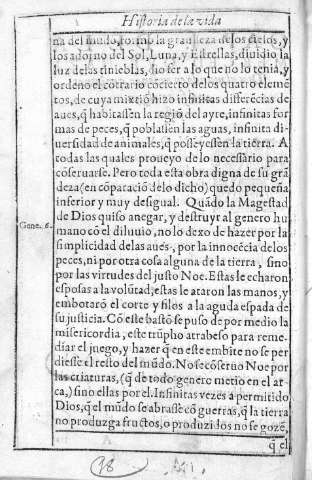 Historia de la vida
na del mũdo, formó la grãdeza delos cielos, y
los adornó del Sol, Luna, y Estrellas, diuidio la
luz delas tinieblas, dio ser a lo que no lo tenia, y
ordeno el cõtrario cõcierto delos quatro elemẽ
tos, de cuya mixtiõ hizo infinitas differẽcias de
aues, q̃ habitassẽn la regiõ del ayre, infinitas for
mas de peces, q̃ poblassẽn las aguas, infinita di-
uersidad de animales, q̃ posseyessẽn la tierra. A
todas las quales proueyo de lo necessario para
cõseruarse. Pero toda esta obra digna de su grã
deza (en cõparaciõ delo dicho) quedo pequeña
inferior y muy desigual. Quãdo la Magestad
de Dios quiso anegar, y destruyr al genero hu
Gene. 6.
mano cõ el diluuio, no lo dexo de hazer por la
simplicidad de las aues, por la innocẽcia de los
peces, ni por otra cosa alguna de la tierra, sino
por las virtudes del justo Noe. Estas le echaron
esposas a la volũtad, estas le ataron las manos, y
embotarõ el corte y filos a la aguda espada de
su justicia. Cõ este bastõ se puso de por medio la
misericordia, este trũpho atrabeso para reme-
diar el juego, y hazer q̃ en este embite no se per
diesse el resto del mũdo. No se cõseruo Noe por
las criaturas, (q̃ de todo genero metio en el ar
ca,) sino ellas por el. Infinitas vezes a permitido
Dios, q̃ el mũdo se abrasse cõ guerras, q̃ la tierra
no produzga fructos, o produzidos no se gozẽ,
q̃ el